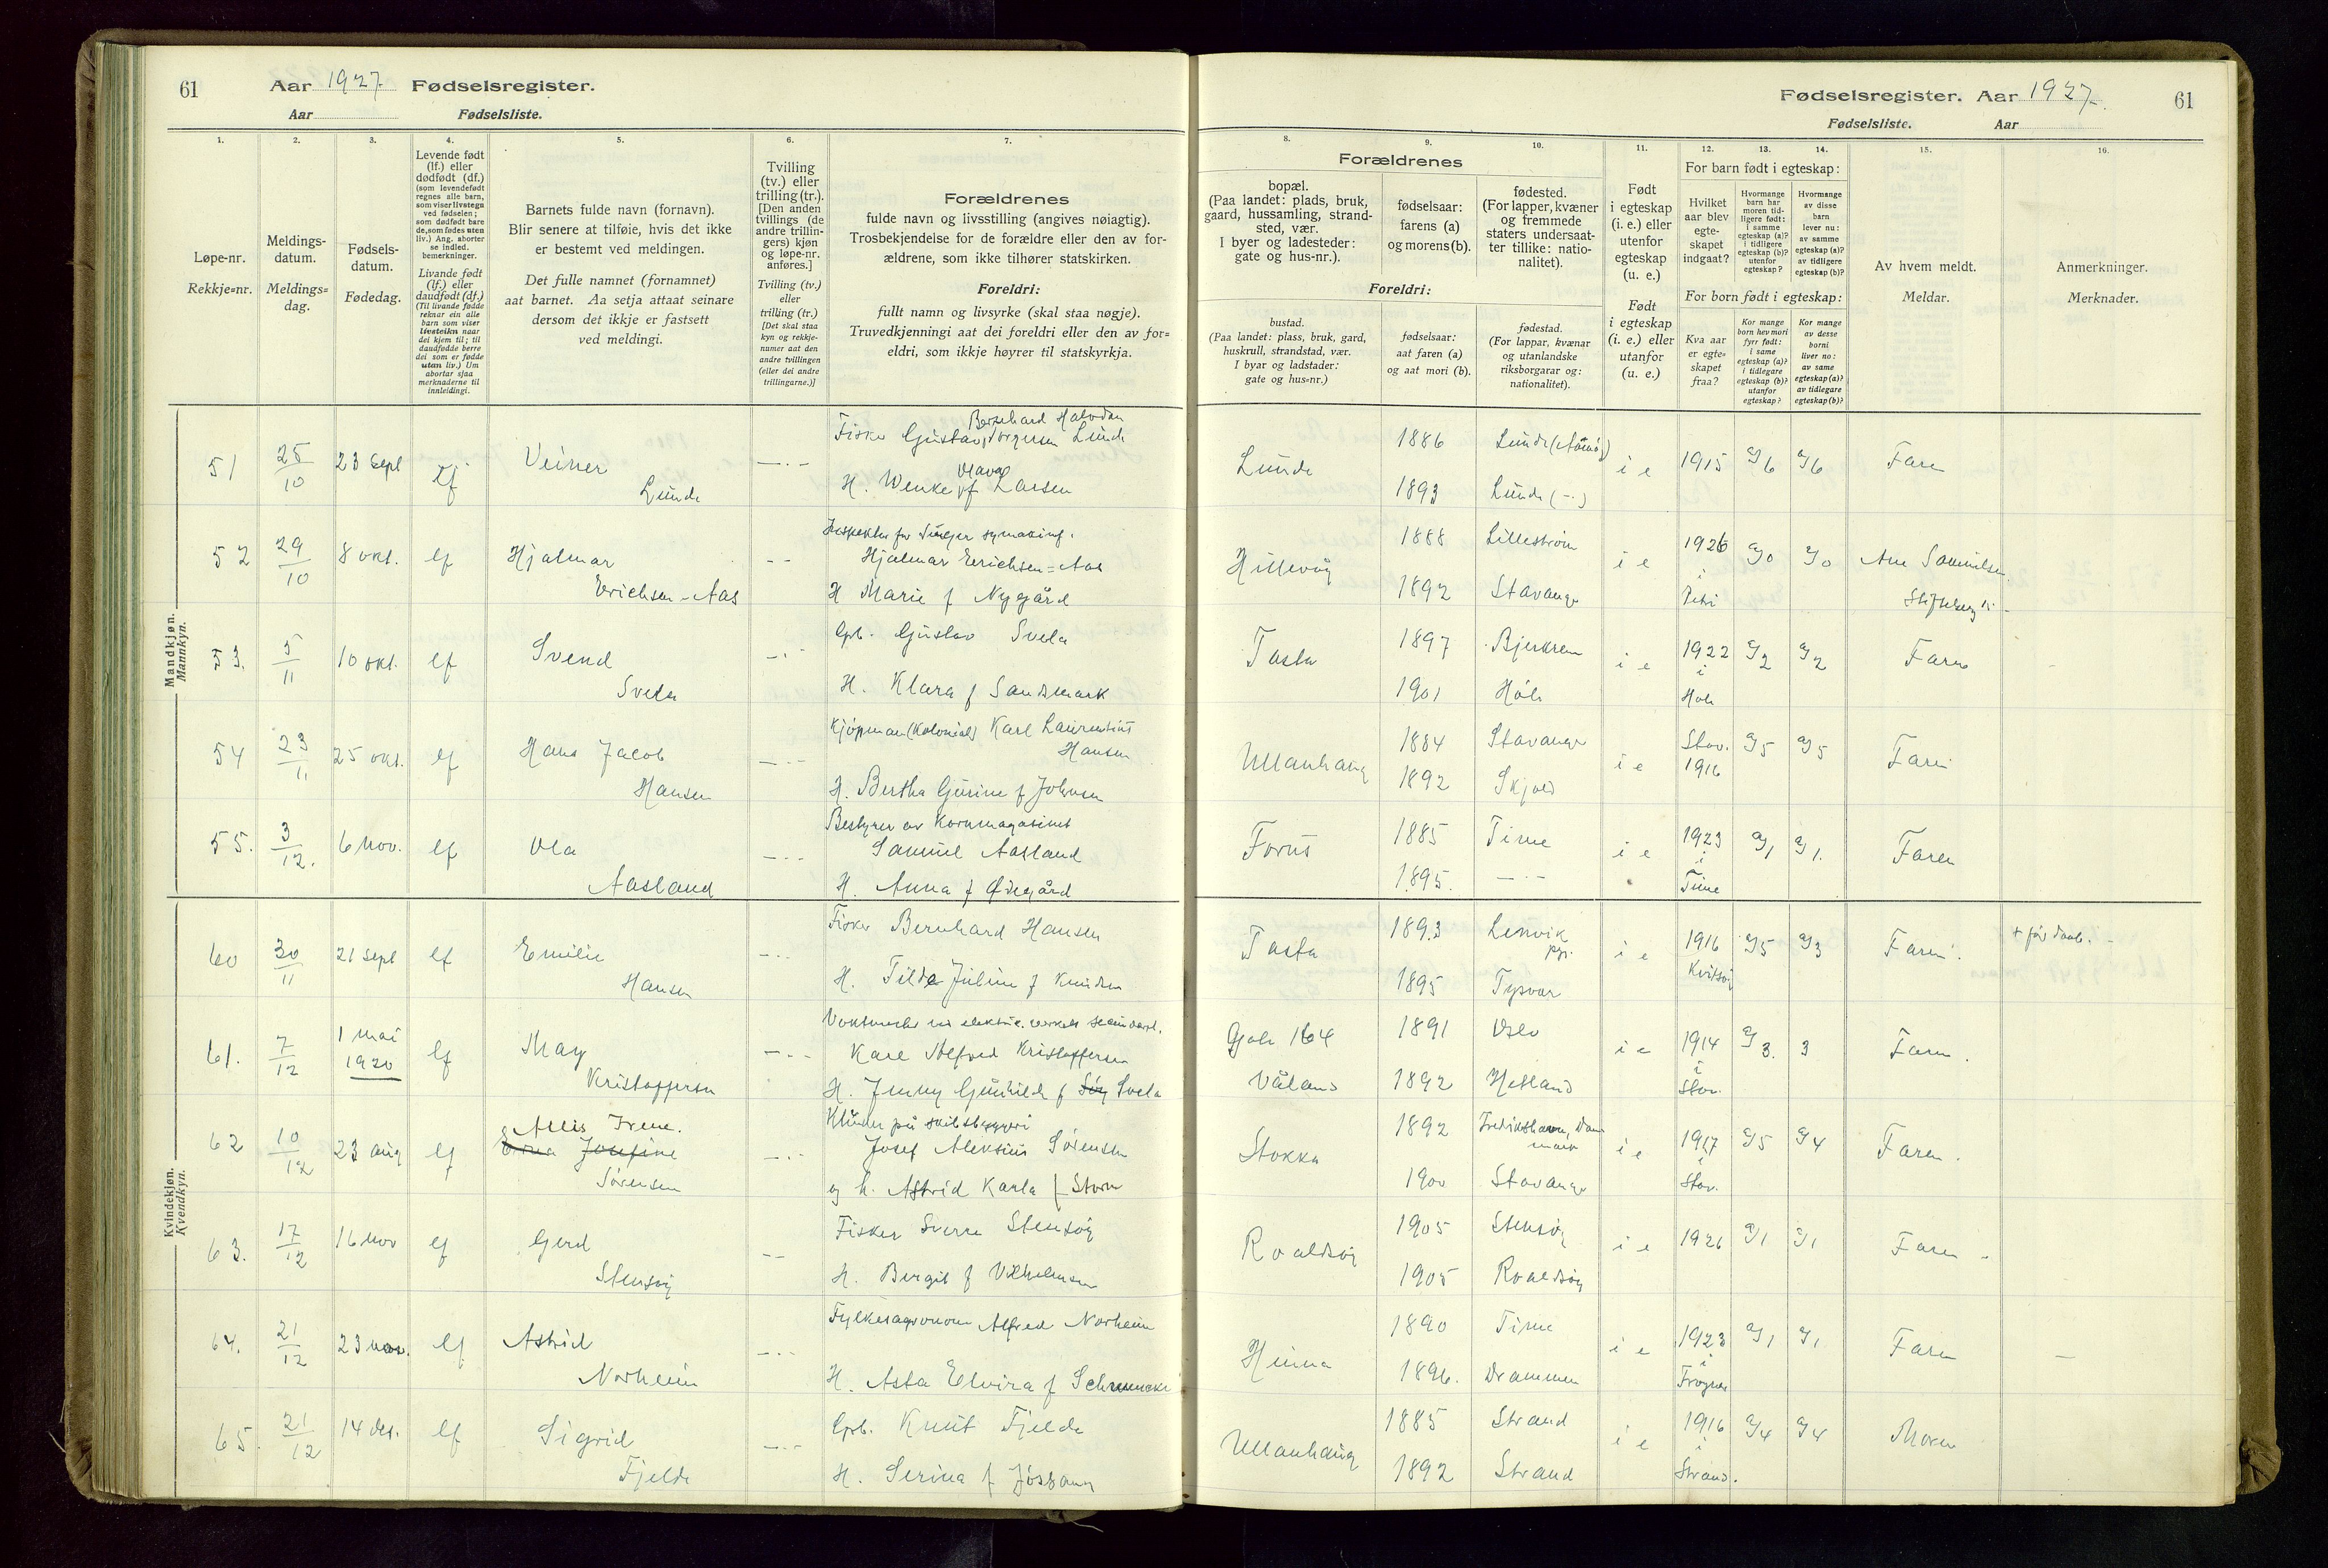 61
Aar 1927 Fødselsregister.
Aar Fødselsliste.
Fødselsregister. Aar 1927.
61
Fødselsliste. Aar
1.
2.
3.
4.
5.
6.
7.
8.
9.
10.
11.
12.
13.
14.
15.
16.
Løpe-nr.
Rekkje=nr.
Meldings-
datum.
Meldings=
dag.
Fødsels-
datum.
Fødedag.
Levende født
(lf.) eller
dødfødt (df.)
(som levendefødt
regnes alle barn,
som viser livstegn
ved fødselen;
som dødfødt bare
de, som fødes uten
liv.) Ang. aborter
se indled.
bemerkninger.
Livande født
(lf.) eller
daudfødt (df.)
(Til livande fødde
reknar ein alle
barn som viser
livsteikn naar
dei kjem til; til
daudfødde berre
dei som er fødde
utan liv.) Um
abortar sjaa
merknaderne til
innleidingi.
Barnets fulde navn (fornavn).
Blir senere at tilføie, hvis det ikke
er bestemt ved meldingen.
Det fulle namnet (fornamnet)
aat barnet. Aa setja attaat seinare
dersom det ikkje er fastsett
ved meldingi.
Tvilling
(tv.) eller
trilling (tr.).
[Den anden
tvillings (de
andre trillin-
gers) kjøn
og løpe-nr.
anføres.]
Tvilling (tv.)
eller
trilling (tr.)
[Det skal staa
kyn og rekkje-
numer aat den
andre tvillingen
(eller dei andre
trillingarne.)]
Forældrenes
fulde navn og livsstilling (angives nøiagtig).
Trosbekjendelse for de forældre eller den av for-
ældrene, som ikke tilhører statskirken.
Foreldri:
fullt namn og livsyrke (skal staa nøgje).
Truvedkjenningi aat dei foreldri eller den av for=
eldri, som ikkje høyrer til statskyrkja.
Forældrenes
bopæl.
(Paa landet: plads, bruk,
gaard, hussamling, strand-
sted, vær.
I byer og ladesteder:
gate og hus-nr.).
fødselsaar:
farens (a)
og morens (b).
fødested.
(For lapper, kvæner
og fremmede
staters undersaat-
ter tillike: natio-
nalitet).
Foreldri:
bustad.
(Paa landet: plass, bruk, gard,
huskrull, strandstad, vær.
I byar og ladstader:
gate og hus=nr.)
fødselsaar:
aat faren (a)
og aat mori (b).
fødestad.
(For lappar, kvænar
og utanlandske
riksborgarar og:
nationalitet).
Født
i egteskap
(i. e.) eller
utenfor
egteskap
(u. e.)
Født
i egteskap
(i. e.) eller
utanfor
(u. e.)
For barn født i egteskap:
Hvilket
aar blev
egte-
skapet
indgaat?
Hvormange
barn har
moren tid-
ligere født:
i samme
egteskap (a)?
i tidligere
egteskap (b)?
utenfor
egteskap?
Hvormange
av disse
barn
lever nu:
av samme
egteskap (a)?
av tidligere
egteskap (b)?
For born født i egteskap:
Kva aar
er egte=
skapet
fraa?
Kor mange
born hev mori
fyrr født:
i same
egteskap (a)?
i tidlegare
egteskap (b)?
utanfor
egteskap?
Kor mange
av desse
borni
liver no:
av same
egteskap (a)?
av tidlegare
egteskap (b)?
Av hvem meldt.
Meldar.
Anmerkninger.
Merknader.
Mandkjøn.
Mannkyn.
51 25/10 23 sept lf Veiner Lunde
Bernhard Halvdan
Fisker Gustav Torgersen Lunde
H. Wenke Olava f Larsen
Lunde 1886 1893 Lunde Lunde i e 1915 a/6 a/6 Faren
52 29/10 8 okt. lf Hjalmar Erichsen-Aas
Inspektør for Singer symaskinf.
Hjalmar Erichsen=Aas
H Marie f Nygård
Hillevåg 1888 Lillestrøm 1892 Stavanger i e 1926 i Petri a/0 a/0
53. 5/11 10 okt. lf Svend Svela
Grb. Gustav Svela
H. Klara f Sandsmark
Tasta 1897 Bjerkrem 1901 Høle i e 1922 i Høle a/2 a/2 Faren
54 23/11 25 okt. lf Hans Jacob Hansen
Kjøpman (Kolonial) Karl Laurentius Hansen
H. Bertha Gurine f Johnsen
Ullanhaug 1884 Stavanger 1892 Skjold i e Stav. 1916 a/5 a/5 Faren
55. 3/12. 6 nov. lf Ola Aasland
Bestyrer av Kornmagasinet
Samuel Aasland
H. Anna f Ødegård
Forus 1885 Time 1895. — · — i e 1923 i Time a/1 a/1. Faren
Kvindekjøn.
Kvendkyn.
60 30/11 21 sept lf Emilie Hansen
Fisker Bernhard Hansen
H. Tilde Juline f Knudsen
Tasta 1893 Lenvik pgj. 1895 Tysvær i e 1916 Kvitsøy a/5 a/3 Faren. + før daab.
61. 7/12 1 mai 1920 lf May Kristoffersen
Karl Alfred Kristoffersen
H. Jenny Gunhilde f Svela
Våland 1891 Oslo 1892 Hetland i e 1914 i Stav. a/3. 3 Faren.
62 10/12 23 aug lf Allis Irene. Erna Josefine Sørensen
Klinker på skibsbyggeri
Josef Aleksius Sørensen
og h. Astrid Karla f Storm
Stokka 1892 Fredrikshavn, Danmark 1900 Stavanger i e 1917 i Stav. a/5 a/4 Faren.
63. 17/12 16 nov lf Gerd Stensøy
Fisker Sverre Stensøy
H. Bergit f Vilhelmsen
Roaldsøy 1905 Stensøy 1905 Roaldsøy i e 1926 a/1 a/1 Faren
64. 21/12 23 nov. lf Astrid Norheim
Fylkesagronom Alfred Norheim
H. Asta Elvira f
Hinna 1890 Time 1896. Drammen i e 1923 i Frogner a/1 a/1 Faren —
65. 21/12 14 des. lf Sigrid Fjelde
Grb. Knut Fjelde
H. Serina f Jøssang
Ullanhaug 1885 Strand 1892 Strand i e 1916 i Strand. a/4 a/4 Moren